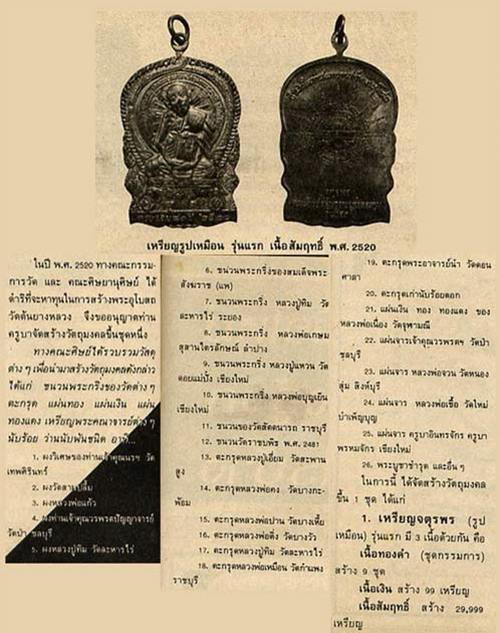 เหรียญรูปเหมือน รุ่นแรก เนื้อสัมฤทธิ์ พ.ศ. 2520
ในปี พ.ศ. 2520 ทางคณะกรรม-
การวัด และ คณะศิษยานุศิษย์ ได้
ดำริที่จะหาทุนในการสร้างพระอุโบสถ
วัดต้นยางหลวง จึงขออนุญาตท่าน
ครูบาจัดสร้างวัตถุมงคลขึ้นชุดหนึ่ง
ทางคณะศิษย์ได้รวบรวมวัสดุ
ต่าง ๆ เพื่อนำมาสร้างวัตถุมงคลดังกล่าว
ได้แก่ ชนวนพระกริ่งของวัดต่าง ๆ
ตะกรุด แผ่นทอง แผ่นเงิน แผ่น
ทองแดง เหรียญพระคณาจารย์ต่าง ๆ
นับร้อย ว่านนับพันชนิด อาทิ...
1. ผงวิเศษของท่านเจ้าคุณนรฯ วัด
เทพศิรินทร์
2. ผงวัดสามปลื้ม
3. ผงหลวงพ่อแก้ว
4. ผงท่านเจ้าคุณวรพรตปัญญาจารย์
วัดป่า ชลบุรี
5. ผงหลวงปู่ทิม วัดละหารไร่
6. ชนวนพระกริ่งของสมเด็จพระ
สังฆราช (แพ)
7. ชนวนพระกริ่ง หลวงปู่ทิม วัด
ละหารไร่ ระยอง
8. ชนวนพระกริ่ง หลวงพ่อเกษม
สุสานไตรลักษณ์ ลำปาง
9. ชนวนพระกริ่ง หลวงปู่แหวน วัด
ดอยแม่ปั๋ง เชียงใหม่
10. ชนวนพระกริ่ง หลวงพ่อบุญเย็น
เชียงใหม่
11. ชนวนของวัดสัตตนารถ ราชบุรี
12. ชนวนวัดราชบพิธ พ.ศ. 2481
13. ตะกรุดหลวงปู่เอี่ยม วัดสะพาน
สูง
14. ตะกรุดหลวงพ่อคง วัดบางกะ-
พ้อม
15. ตะกรุดหลวงพ่อปาน วัดบางเหี้ย
16. ตะกรุดหลวงพ่อดิ่ง วัดบางวัว
17. ตะกรุดหลวงปู่ทิม วัดละหารไร่
18. ตะกรุดหลวงพ่อเหมือน วัดกำแพง
ราชบุรี
19. ตะกรุดพระอาจารย์นำ วัดดอน
ศาลา
20. ตะกรุดเก่านับร้อยดอก
21. แผ่นเงิน ทอง ทองแดง ของ
หลวงพ่อเนื่อง วัดจุฬามณี
22. แผ่นจารเจ้าคุณวรพรตฯ วัดป่า
ชลบุรี
23. แผ่นจาร หลวงพ่อจวน วัดหนอง
สุ่ม สิงห์บุรี
24. แผ่นจาร หลวงพ่อเชื้อ วัดใหม่
บำเพ็ญบุญ
25. แผ่นจาร ครูบาอินทรจักร ครูบา
พรหมจักร เชียงใหม่
26. พระบูชาชำรุด และอื่น ๆ
ในการนี้ ได้จัดสร้างวัตถุมงคล
ขึ้น 1 ชุด ได้แก่
1. เหรียญจตุรพร (รูป
เหมือน) รุ่นแรก มี 3 เนื้อด้วยกัน คือ
เนื้อทองคำ (ชุดกรรมการ)
สร้าง 9 ชุด
เนื้อเงิน สร้าง 99 เหรียญ
เนื้อสัมฤทธิ์ สร้าง 29,999
เหรียญ